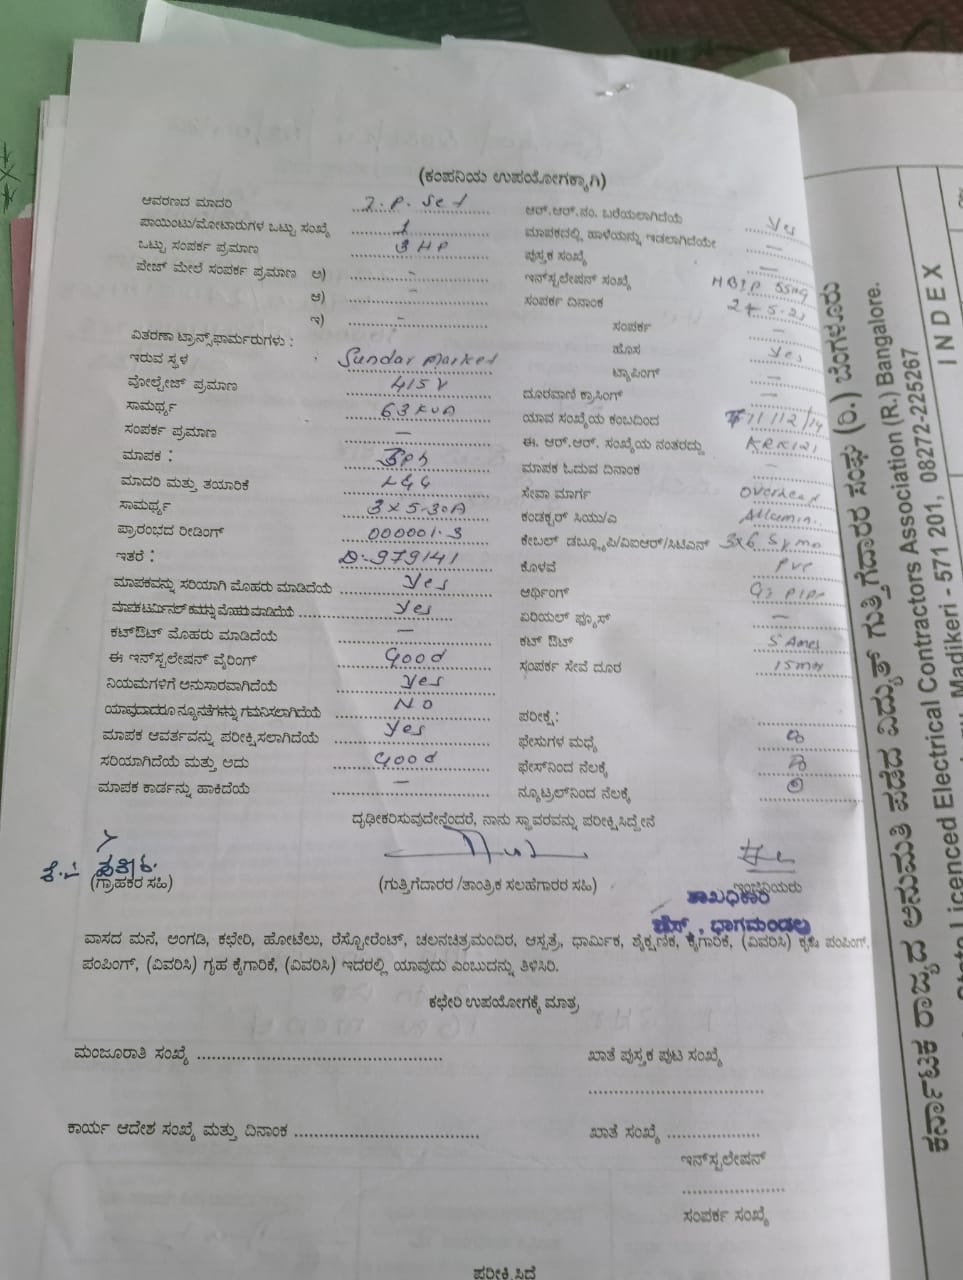 (ಕಂಪನಿಯ ಉಪಯೋಗಕ್ಕಾಗಿ)
ಆವರಣದ ಮಾದರಿ I.P. Set
ಪಾಯಿಂಟು/ಮೋಟಾರುಗಳ ಒಟ್ಟು ಸಂಖ್ಯೆ 1
ಒಟ್ಟು ಸಂಪರ್ಕ ಪ್ರಮಾಣ 3 HP
ಪೇಜ್ ಮೇಲೆ ಸಂಪರ್ಕ ಪ್ರಮಾಣ ಅ) -
ಆ) -
ಇ) -
ವಿತರಣಾ ಟ್ರಾನ್ಸ್‌ಫಾರ್ಮರುಗಳು :
ಇರುವ ಸ್ಥಳ Sundar Market
ವೋಲ್ಟೇಜ್ ಪ್ರಮಾಣ 415 V
ಸಾಮರ್ಥ್ಯ 63 KVA
ಸಂಪರ್ಕ ಪ್ರಮಾಣ -
ಮಾಪಕ : 3Ph
ಮಾದರಿ ಮತ್ತು ತಯಾರಿಕೆ L&G
ಸಾಮರ್ಥ್ಯ 3 x 5-30A
ಪ್ರಾರಂಭದ ರೀಡಿಂಗ್ 000001.3
ಇತರೆ : D.979141
ಮಾಪಕವನ್ನು ಸರಿಯಾಗಿ ಮೊಹರು ಮಾಡಿದೆಯೆ Yes
ಮಾಪಕ ಟರ್ಮಿನಲ್ ಕವನ್ನು ಮೊಹರು ಮಾಡಿದೆಯೆ Yes
ಕಟ್‌ಔಟ್ ಮೊಹರು ಮಾಡಿದೆಯೆ -
ಈ ಇನ್‌ಸ್ಟಲೇಷನ್ ವೈರಿಂಗ್ Good
ನಿಯಮಗಳಿಗೆ ಅನುಸಾರವಾಗಿದೆಯೆ Yes
ಯಾವುದಾದರೂ ನ್ಯೂನತೆಗಳನ್ನು ಗಮನಿಸಲಾಗಿದೆಯೆ NO
ಮಾಪಕ ಆವರ್ತವನ್ನು ಪರೀಕ್ಷಿಸಲಾಗಿದೆಯೆ Yes
ಸರಿಯಾಗಿದೆಯೆ ಮತ್ತು ಅದು Good
ಮಾಪಕ ಕಾರ್ಡನ್ನು ಹಾಕಿದೆಯೆ -
ಆರ್.ಆರ್.ನಂ. ಬರೆಯಲಾಗಿದೆಯೆ Yes
ಮಾಪಕದಲ್ಲಿ ಹಾಳೆಯನ್ನು ಇಡಲಾಗಿದೆಯೇ -
ಪುಸ್ತಕ ಸಂಖ್ಯೆ -
ಇನ್‌ಸ್ಟಲೇಷನ್ ಸಂಖ್ಯೆ
ಸಂಪರ್ಕ ದಿನಾಂಕ
ಸಂಪರ್ಕ -
ಹೊಸ Yes
ಟ್ಯಾಪಿಂಗ್ -
ದೂರವಾಣಿ ಕ್ರಾಸಿಂಗ್ -
ಯಾವ ಸಂಖ್ಯೆಯ ಕಂಬದಿಂದ
ಈ. ಆರ್.ಆರ್. ಸಂಖ್ಯೆಯ ನಂತರದ್ದು
ಮಾಪಕ ಓದುವ ದಿನಾಂಕ -
ಸೇವಾ ಮಾರ್ಗ Overhead
ಕಂಡಕ್ಟರ್ ಸಿಯು/ಎ Allumin.
ಕೇಬಲ್ ಡಬ್ಲ್ಯೂಪಿ/ವಿಐಆರ್/ಸಿಟಿಎಸ್ 3x6 Sqmm
ಕೊಳವೆ PVC
ಆರ್ಥಿಂಗ್ GI Pipe
ಏರಿಯಲ್ ಫ್ಯೂಸ್ -
ಕಟ್ ಔಟ್ 5 Amps
ಸಂಪರ್ಕ ಸೇವೆ ದೂರ
ಪರೀಕ್ಷೆ:
ಫೇಸುಗಳ ಮಧ್ಯೆ
ಫೇಸ್‌ನಿಂದ ನೆಲಕ್ಕೆ
ನ್ಯೂಟ್ರಲ್‌ನಿಂದ ನೆಲಕ್ಕೆ
ದೃಢೀಕರಿಸುವುದೇನೆಂದರೆ, ನಾನು ಸ್ಥಾವರವನ್ನು ಪರೀಕ್ಷಿಸಿದ್ದೇನೆ
(ಗ್ರಾಹಕರ ಸಹಿ) (ಗುತ್ತಿಗೆದಾರರ /ತಾಂತ್ರಿಕ ಸಲಹೆಗಾರರ ಸಹಿ) ಇಂಜಿನಿಯರು
ಶಾಖಾಧಿಕಾರಿ
ಚೆಸ್ಕ್, ಭಾಗಮಂಡಲ
ವಾಸದ ಮನೆ, ಅಂಗಡಿ, ಕಛೇರಿ, ಹೋಟೆಲು, ರೆಸ್ಟೋರೆಂಟ್, ಚಲನಚಿತ್ರಮಂದಿರ, ಆಸ್ಪತ್ರೆ, ಧಾರ್ಮಿಕ, ಶೈಕ್ಷಣಿಕ, ಕೈಗಾರಿಕೆ, (ವಿವರಿಸಿ) ಕೃಷಿ ಪಂಪಿಂಗ್,
ಪಂಪಿಂಗ್, (ವಿವರಿಸಿ) ಗೃಹ ಕೈಗಾರಿಕೆ, (ವಿವರಿಸಿ) ಇದರಲ್ಲಿ ಯಾವುದು ಎಂಬುದನ್ನು ತಿಳಿಸಿರಿ.
ಕಛೇರಿ ಉಪಯೋಗಕ್ಕೆ ಮಾತ್ರ
ಮಂಜೂರಾತಿ ಸಂಖ್ಯೆ ........ ಖಾತೆ ಪುಸ್ತಕ ಪುಟ ಸಂಖ್ಯೆ
ಕಾರ್ಯ ಆದೇಶ ಸಂಖ್ಯೆ ಮತ್ತು ದಿನಾಂಕ ........ ಖಾತೆ ಸಂಖ್ಯೆ ........
ಇನ್‌ಸ್ಟಲೇಷನ್
ಸಂಪರ್ಕ ಸಂಖ್ಯೆ
ಪರೀಕ್ಷಿಸಿದೆ
ಕರ್ನಾಟಕ ರಾಜ್ಯದ ಅನುಮತಿ ಪಡೆದ ವಿದ್ಯುತ್ ಗುತ್ತಿಗೆದಾರರ ಸಂಘ (ರಿ.) ಬೆಂಗಳೂರು
State Licenced Electrical Contractors Association (R.) Bangalore.
Madikeri - 571 201, 08272-225267
INDEX